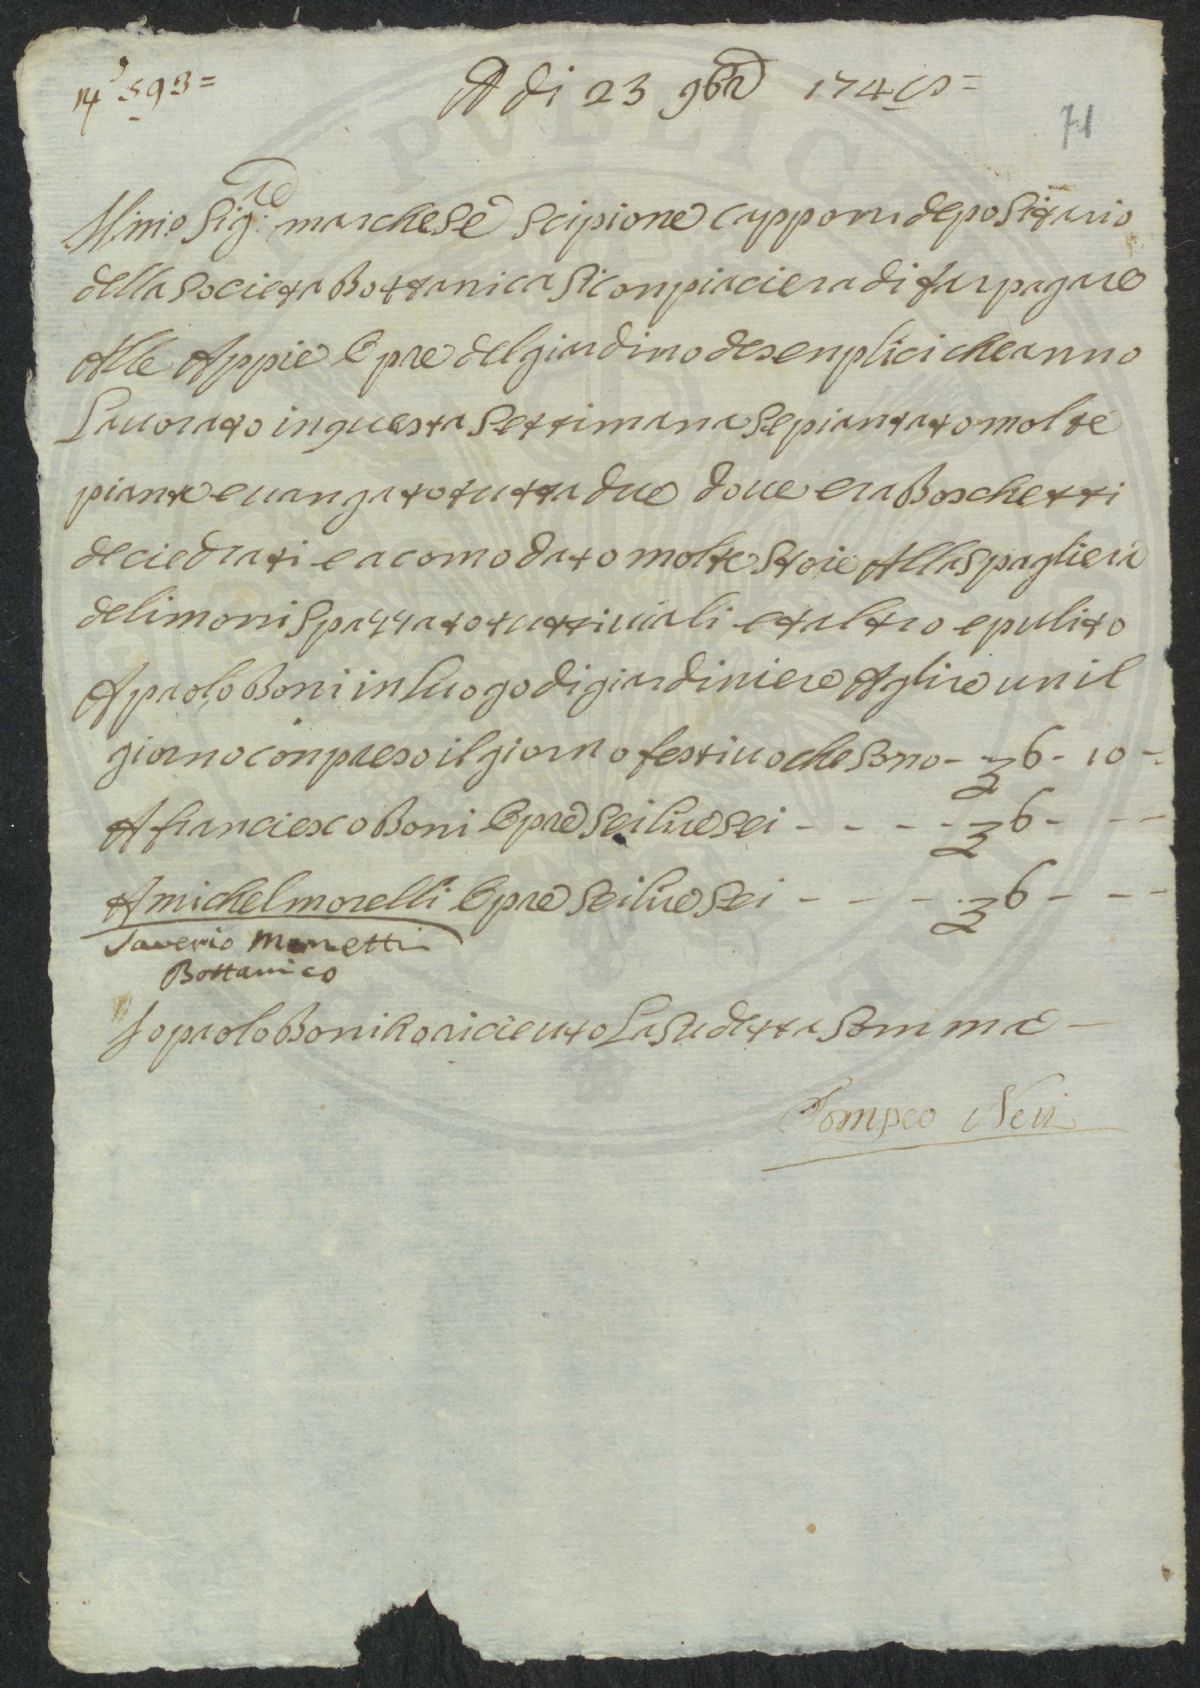 593=
A di 23 9bre 174
71
Ill.mo Sig:re marchese Scipione Capponi depositario
della Societa Bottanica Si conpiaciera di far pagare
Alle Appie Opre del giardino de senplici che anno
Lavorato in questa Settimana Se piantato molte
piante e vangato tutta due dove era Boschetti
de ciedrati e acomodato molte stoie Alla spagliera
de limoni Spazzato tutti viali et altro e pulito
A paolo Boni in luogo di giardiniere A lire un il
giorno conpreso il giorno festivo che sono - £ 6 - 10 -
A franciesco Boni Opre Sei lire sei - - - - £ 6 - - -
A michel morelli Opre Sei lire sei - - - - £ 6 - - -
Saverio Manetti
Bottanico
Io paolo Boni ho ricieuto La sudetta Somma -
Pompeo Neri